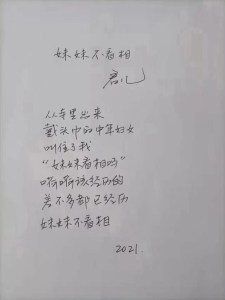 妹妹不看相
君儿
从寺里出来
戴头巾的中年妇女
叫住了我
“妹妹看相吗”
啊啊该经历的
差不多都已经历
妹妹不看相
2021.